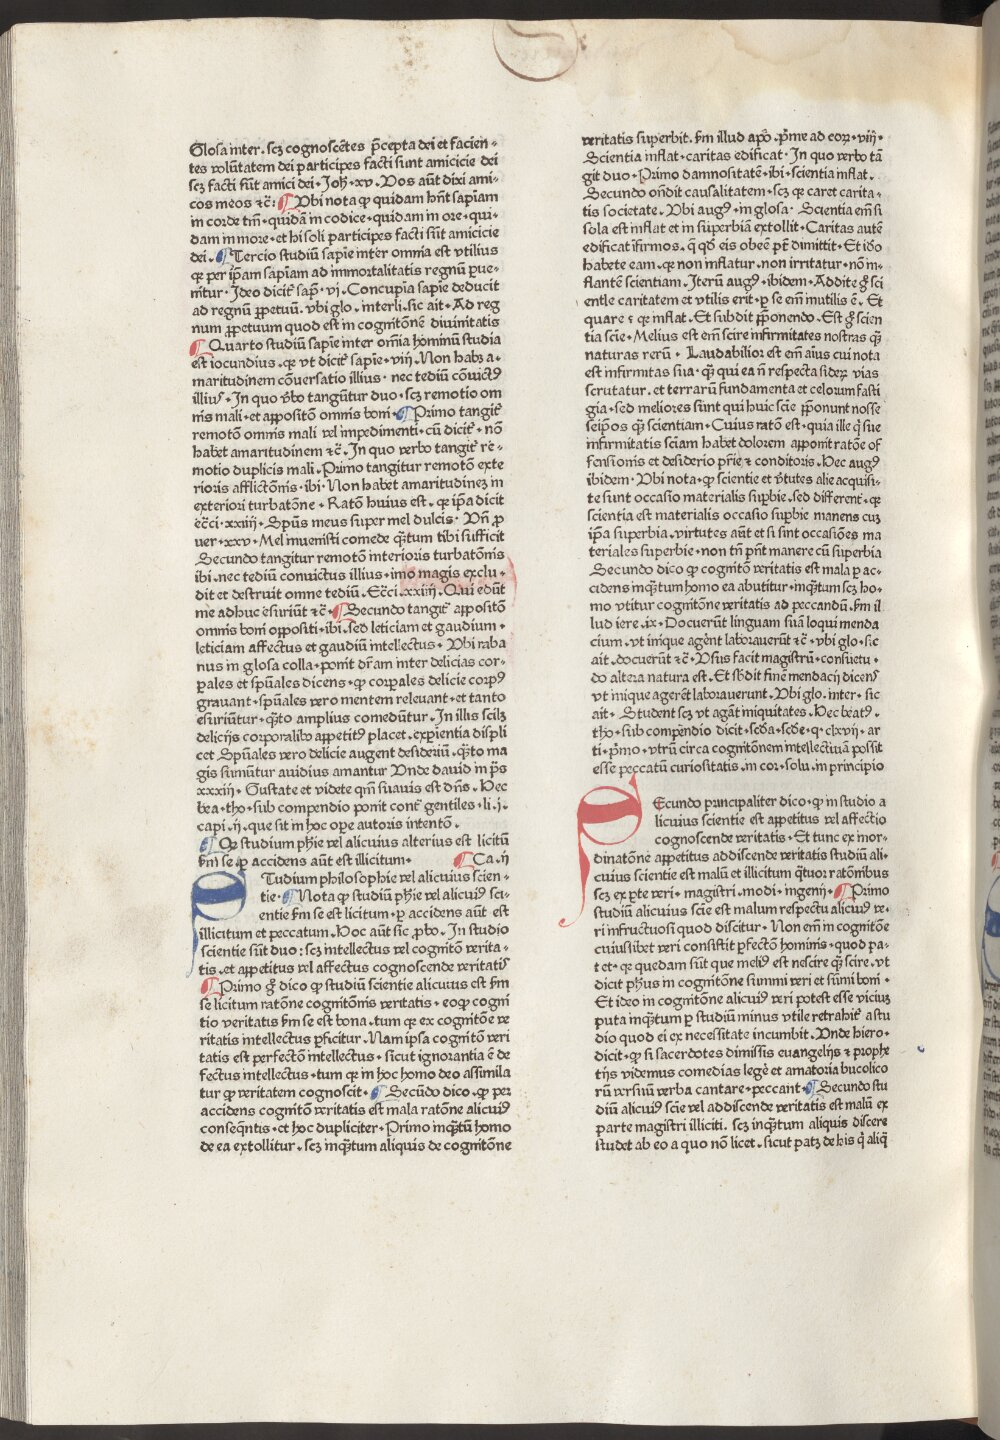 Glosa inter. scꝫ cognoscētes p̄cepta dei et facien⸗
tes volūtatem dei participes facti sunt amicicie dei
scꝫ facti sūt amici dei. Joh̄. xv. Vos aūt dixi ami⸗
cos meos ⁊c̄: ¶ Vbi nota ꝙ quidam hn̄t sapiam̄
in corde tm̄. quidā in codice. quidam in ore. qui⸗
dam in more. et hi soli participes facti sūt amicicie
dei. ¶ Tercio studiū sapie inter omnia est vtilius
qꝛ per ip̄am sapiam̄ ad immortalitatis regnū ꝑue⸗
nitur. Ideo dicit᷑ sap̄. vj. Concupia sapie deducit
ad regnū ꝑpetuū. vbi glo. interli. sic ait. Ad reg
num ꝑpetuum quod est in cognitōne divinitatis
¶ Quarto studiū sapie inter om̄ia hominū studia
est iocundius. qꝛ vt dicit᷑ sapie. viij. Non habꝫ a⸗
maritudinem cōuersatio illius. nec tediū cōuictꝰ
illiꝰ. In quo v̄bo tangūtur duo. scꝫ remotio om
nis mali. et appositō omnis boni. ¶ Primo tangit᷑
remotō omnis mali vel impedimenti. cū dicit᷑. nō
habet amaritudinem ⁊c̄. In quo verbo tangit᷑ re⸗
motio duplicis mali. Primo tangitur remotō exte
rioris afflictōnis. ibi. Non habet amaritudineꝫ in
exteriori turbatōne. Ratō huius est. qꝛ ip̄a dicit
ecci. xxiiij. Spūs meus super mel dulcis. Vn̄ ꝓ
uer. xxv. Mel inuenisti comede qꝫtum tibi sufficit
Secundo tangitur remotō interioris turbatōnis
ibi. nec tediū conuictus illius. imo magis exclu⸗
dit et destruit omne tediū. Ecci. xxiiij. Qui edūt
me adhuc esuriūt ⁊c̄. ¶ Secundo tangit᷑ appositō
omnis boni oppositi. ibi. sed leticiam et gaudium.
leticiam affectus et gaudiū intellectus. Vbi raba
nus in glosa colla. ponit dr̄am inter delicias cor⸗
ꝑales et spūales dicens. ꝙ corꝑales delicie corpꝰ
grauant. spūales vero mentem releuant. et tanto
esuriūtur. qꝫto amplius comedūtur. In illis scilꝫ
delicijs corporalibꝰ appetitꝰ placet. exꝑientia displi
cet Spūales vero delicie augent desideriū. qꝫto ma
gis sumūtur auidius amantur Vnde dauid in p̄s
xxxiij. Gustate et videte qm̄ suauis est dn̄s. Hec
bea. tho. sub compendio ponit cont̄ gentiles. li. j.
capi. ij. que sit in hoc oꝑe autoris intentō.
¶ Qꝙ studium phīe vel alicuius alterius est licitū
fm̄ se ꝑ accidens aūt est illicitum. ¶ Ca. ij
STudium philosophie vel alicuius scien⸗
tie. ¶ Nota ꝙ studiū phīe vel alicuiꝰ sci⸗
entie fm̄ se est licitum. ꝑ accidens aūt est
illicitum et peccatum. Hoc aūt sic ꝓbo. In studio
scientie sūt duo: scꝫ intellectus vel cognitō verita⸗
tis. et appetitus vel affectus cognoscende veritatꝭ
¶ Primo g̊ dico ꝙ studiū scientie alicuius est fm̄
se licitum ratōne cognitōnis veritatis. eoꝙ cogni
tio veritatis fm̄ se est bona. tum qꝛ ex cognitōe ve
ritatis intellectus ꝑficitur. Nam ipsa cognitō veri
tatis est perfectō intellectus. sicut ignorantia ē de
fectus intellectus. tum qꝛ in hoc homo deo assimila
tur ꝙ veritatem cognoscit. ¶ Secūdo dico. ꝙ per
accidens cognitō veritatis est mala ratōne alicuiꝰ
conseq̄ntis. et hoc dupliciter. Primo inqꝫtū homo
de ea extollitur. scꝫ inqꝫtum aliquis de cognitōne
veritatis superbit. fm̄ illud apo̊. p̄me ad coꝝ. viij.
Scientia inflat. caritas edificat. In quo verbo tā
git duo. Primo damnositatē. ibi. scientia inflat.
Secundo on̄dit causalitatem. scꝫ qꝛ caret carita⸗
tis societate. Vbi augꝰ. in glosa. Scientia em̄ si
sola est inflat et in superbiā extollit. Caritas autē
edificat ifirmos. q̄ qd̄ eis obeē pt̄ dimittit. Et iō
habete eam. qꝛ non inflatur. non irritatur. nō in⸗
flantē scientiam. Iterū augꝰ. ibidem. Addite g̊ sci
entie caritatem et vtilis erit. ꝑ se em̄ inutilis ē. Et
quare: qꝛ inflat. Et subdit ꝓponendo. Est g̊ scien
tia scīe. Melius est em̄ scire infirmitates nostras qꝫ
naturas rerū. Laudabilior est em̄ aīus cui nota
est infirmitas sua. qꝫ qui ea n̄ respecta sideꝝ vias
scrutatur. et terrarū fundamenta et celorum fasti
gia. sed meliores sunt qui huic scīe ꝓponunt nosse
seip̄os qꝫ scientiam. Cuius ratō est. quia ille q̄ sue
infirmitatis sciam habet dolorem apponit ratōe of
fensionis et desiderio pr̄ie ⁊ conditoris. Hec augꝰ
ibidem. Vbi nota. ꝙ scientie et v̄tutes alie acquisi⸗
te sunt occasio materialis suꝑbie. sed different. qꝛ
scientia est materialis occasio suꝑbie manens cuꝫ
ip̄a superbia. virtutes aūt et si sint occasiōes ma
teriales superbie. non tn̄ pn̄t manere cū superbia
Secundo dico ꝙ cognitō veritatis est mala ꝑ ac⸗
cidens inqꝫtum homo ea abutitur. inqꝫtum scꝫ ho⸗
mo vtitur cognitōne veritatis ad peccandū. fm̄ il
lud iere. ix. Docuerūt linguam suā loqui menda
cium. vt inique agēnt laborauerūt ⁊c̄. vbi glo. sic
ait. docuerūt ⁊c̄. Vsus facit magistrū. consuetu⸗
do altera natura est. Et sb̄dit finē mendacij dicens
vt inique agerēt laborauerunt. Vbi glo. inter. sic
ait. Student scꝫ vt agāt iniquitates. Hec beatꝰ.
tho. sub compēdio dicit. scd̄a. scd̄e. q. clxvij. ar
ti. p̄mo. vtrū circa cognitōnem intellectiuā possit
esse peccatū curiositatis. in cor. solu. in principio
SEcundo principaliter dico. ꝙ in studio a
licuius scientie est appetitus vel affectio
cognoscende veritatis. Et tunc ex inor⸗
dinatōne appetitus addiscende veritatis studiū ali⸗
cuius scientie est malū et illicitum q̄tuoꝛ ratōnibus
scꝫ ex ꝑte veri. magistri. modi. ingenij. ¶ Primo
studiū alicuius scīe est malum respectu alicuiꝰ ve⸗
ri infructuosi quod discitur. Non em̄ in cognitōe
cuiuslibet veri consistit ꝑfectō hominis. quod pa⸗
t et. qꝛ quedam sūt que meliꝰ est nescire qꝫ scire. vt
dicit ph̄us in cognitōne summi veri et sūmi boni.
Et ideo in cognitōne alicuiꝰ veri potest esse viciuꝫ
puta inqꝫtum ꝑ studiū minus vtile retrahit᷑ a stu
dio quod ei ex necessitate incumbit. Vnde hiero⸗
dicit. ꝙ si sacerdotes dimissis euangelijs ⁊ prophe
tijs videmus comedias legē et amatoria bucolico
rū versuū verba cantare. peccant. ¶ Secundo stu
diū alicuiꝰ scīe vel addiscende veritatis est malū ex
parte magistri illiciti. scꝫ inqꝫtum aliquis discere
studet ab eo a quo nō licet. sicut patꝫ de his q̄ aliq̄